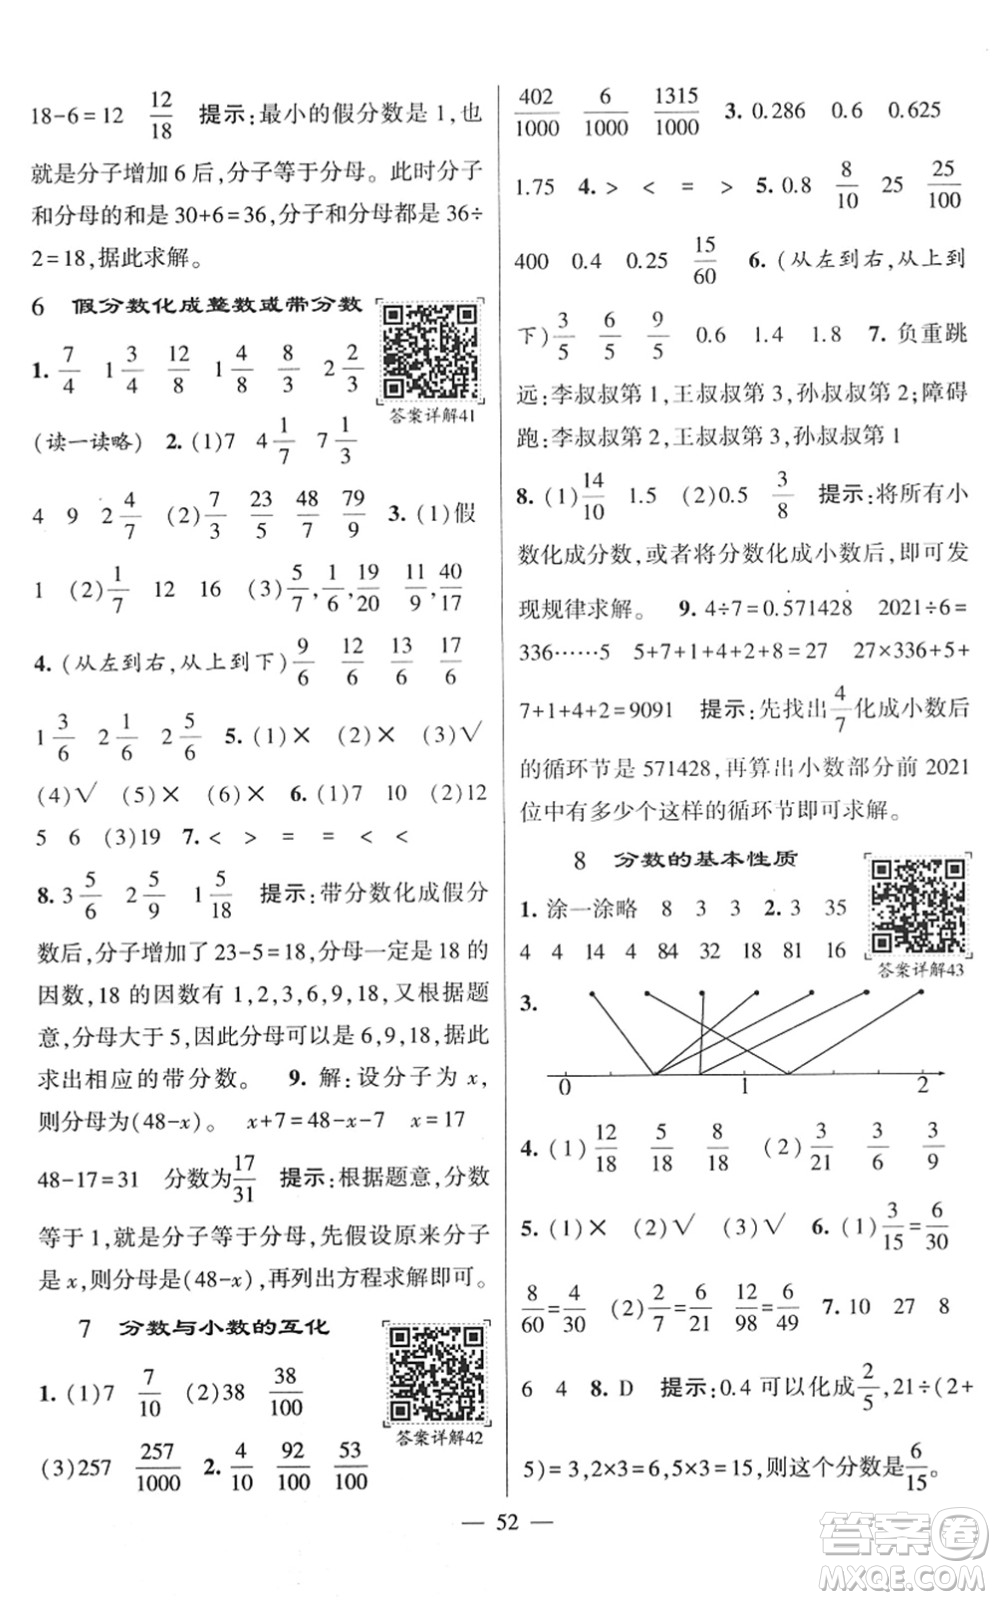 18-6=12　12/18　提示:最小的假分数是 1,也
就是分子增加 6 后,分子等于分母。此时分子
和分母的和是 30+6=36,分子和分母都是 36÷
2=18,据此求解。
6　假分数化成整数或带分数
答案详解41
1. 7/4　1 3/4　12/8　1 4/8　8/3　2 2/3
(读一读略)　2. (1)7　4 1/7　7 1/3
4　9　2 4/7　(2) 7/3　23/5　48/7　79/9　3. (1)假
1　(2) 1/7　12　16　(3) 5/7, 1/6, 19/20　11/9, 40/17
4. (从左到右,从上到下) 9/6　12/6　13/6　17/6
1 3/6　2 1/6　2 5/6　5. (1)×　(2)×　(3)√
(4)√　(5)×　(6)×　6. (1)7　10　(2)12
5　6　(3)19　7. <　>　=　=　<　<
8. 3 5/6　2 5/9　1 5/18　提示:带分数化成假分
数后,分子增加了 23-5=18,分母一定是 18 的
因数,18 的因数有 1,2,3,6,9,18,又根据题
意,分母大于 5,因此分母可以是 6,9,18,据此
求出相应的带分数。　9. 解:设分子为 x,
则分母为(48-x)。　x+7=48-x-7　x=17
48-17=31　分数为 17/31　提示:根据题意,分数
等于 1,就是分子等于分母,先假设原来分子
是 x,则分母是(48-x),再列出方程求解即可。
7　分数与小数的互化
答案详解42
1. (1)7　7/10　(2)38　38/100
(3)257　257/1000　2. 4/10　92/100　53/100
402/1000　6/1000　1315/1000　3. 0.286　0.6　0.625
1.75　4. >　<　=　>　5. 0.8　8/10　25　25/100
400　0.4　0.25　15/60　6. (从左到右,从上到
下) 3/5　6/5　9/5　0.6　1.4　1.8　7. 负重跳
远:李叔叔第 1,王叔叔第 3,孙叔叔第 2;障碍
跑:李叔叔第 2,王叔叔第 3,孙叔叔第 1
8. (1) 14/10　1.5　(2)0.5　3/8　提示:将所有小
数化成分数,或者将分数化成小数后,即可发
现规律求解。　9. 4÷7=0.5̇71428̇　2021÷6=
336……5　5+7+1+4+2+8=27　27×336+5+
7+1+4+2=9091　提示:先找出 4/7 化成小数后
的循环节是 571428,再算出小数部分前 2021
位中有多少个这样的循环节即可求解。
8　分数的基本性质
答案详解43
1. 涂一涂略　8　3　3　2. 3　35
4　4　14　4　84　32　18　81　16
3.
0　1　2
4. (1) 12/18　5/18　8/18　(2) 3/21　3/6　3/9
5. (1)×　(2)√　(3)√　6. (1) 3/15=6/30
8/60=4/30　(2) 2/7=6/21　12/98=6/49　7. 10　27　8
6　4　8. D　提示:0.4 可以化成 2/5,21÷(2+
5)=3,2×3=6,5×3=15,则这个分数是 6/15。
— 52 —
答案卷
MXQE.COM